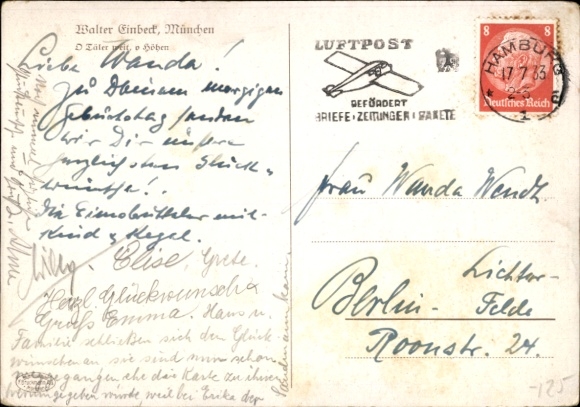 Walter Einbeck, München
O Täler weit, o Höhen
Liebe Wanda!
Zu Deinem morgigen
Geburtstag senden
wir Dir unsere
herzlichsten Glück-
wünsche!
Die Eimsbütteler mit
Kind u Kegel.
Willy. Elise, Grete.
Herzl. Glückwunsch &
Gruß Emma. Hans u.
Familie schließen sich den Glück-
wünschen an sie sind nur schon
gegangen ehe die Karte zu ihnen
würde, weil bei Erika der
LUFTPOST
BEFÖRDERT
BRIEFE·ZEITUNGEN·PAKETE
HAMBURG
17.7.33
1
8 8
Deutsches Reich
Frau Wanda Wendt
Berlin-
Lichter-
Felde
Roonstr. 24.
-125